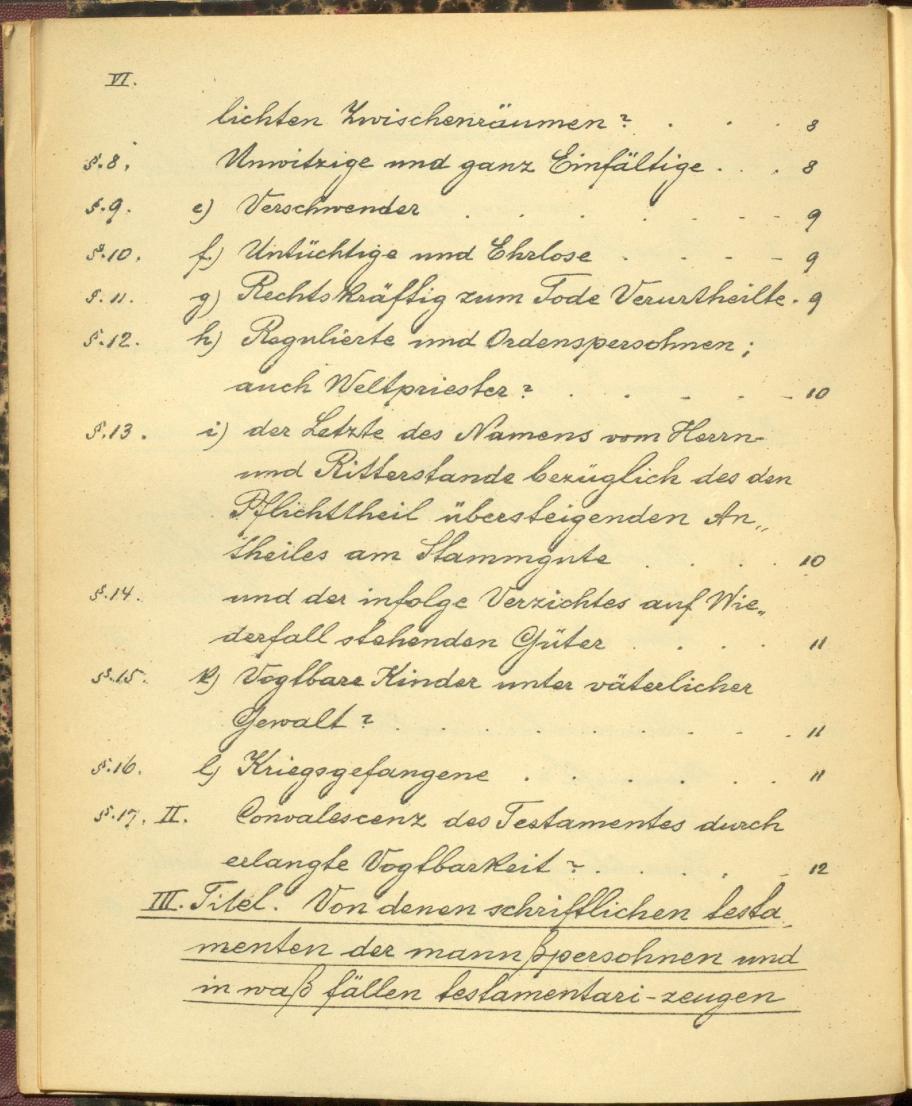 VI.
lichten Zwischenräumen? . . . 8
§.8. Unwitzige und ganz Einfältige . . . 8
§.9. e) Verschwender . . . . . - - 9
§.10. f.) Untüchtige und Ehrlose . - - - 9
§.11. g) Rechtskräftig zum Tode Verurtheilte. 9
§.12. h) Regulierte und Ordenspersohnen;
auch Weltpriester? . . . - - 10
§.13. i) der Letzte des Namens vom Herrn-
und Ritterstande bezüglich des den
Pflichttheil übersteigenden An„
theiles am Stammgute . . . . 10
§.14. und der infolge Verzichtes auf Wie„
derfall stehenden Güter . . . . 11
§.15. k) Vogtbare Kinder unter väterlicher
Gewalt? . . . . . - - - 11
§.16. l) Kriegsgefangene . . . . . . . 11
§.17. II. Convalescenz des Testamentes durch
erlangte Vogtbarkeit? . . . . . 12
III. Titel. Von denen schriftlichen testa
menten der mannßpersohnen und
in waß fällen testamentari-zeugen